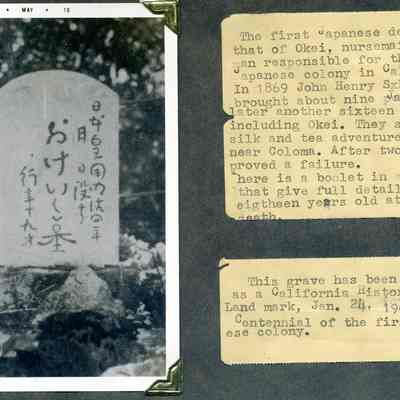 MAY
日本皇国明治四年
月 日 没す
おけい之墓
行年十九才
The first Japanese de
that of Okei, nursemai
man responsible for th
Japanese colony in Ca
In 1869 John Henry
brought about nine
later another sixteen
including Okei. They s
silk and tea adventure
near Coloma. After two
proved a failure.
There is a booklet in
that give full detail
eigtheen years old at
death.
This grave has been
as a California Histo
Land mark, Jan. 24, 19
Centennial of the fir
ese colony.